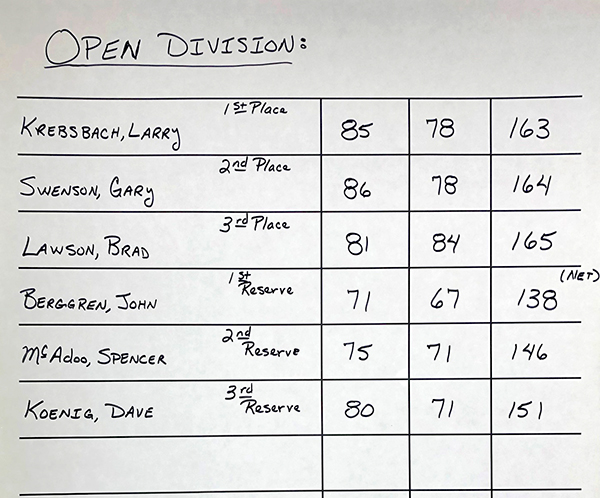 OPEN DIVISION:
KREBSBACH, LARRY 1st Place 85 78 163
SWENSON, GARY 2nd Place 86 78 164
LAWSON, BRAD 3rd Place 81 84 165
BERGGREN, JOHN 1st Reserve 71 67 138 (NET)
McAdoo, SPENCER 2nd Reserve 75 71 146
KOENIG, DAVE 3rd Reserve 80 71 151